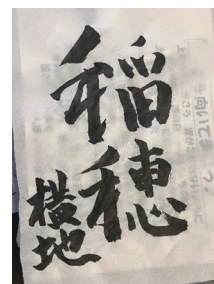 稲穂
横地